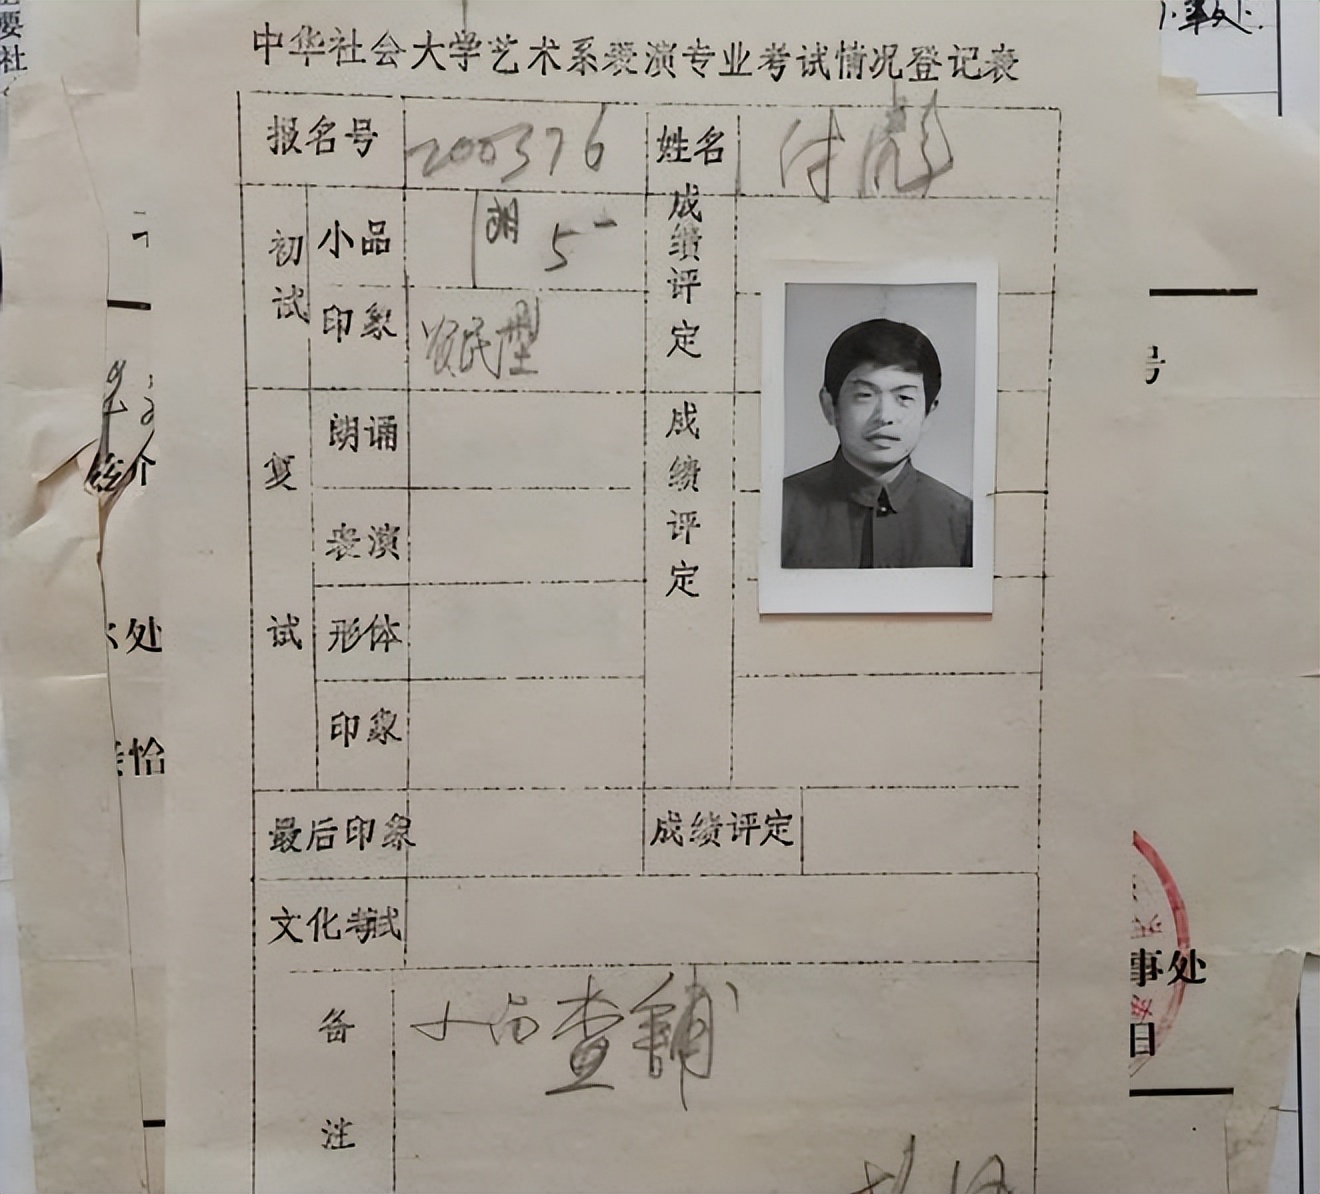 中华社会大学艺术系表演专业考试情况登记表
报名号 200376 姓名 付彪
初试 小品 朗 5- 成绩评定
印象 农民型
复试 朗诵 成绩评定
表演
形体
印象
最后印象 成绩评定
文化考试
备注 小品查铺
要社
处
恰
号
事处
日